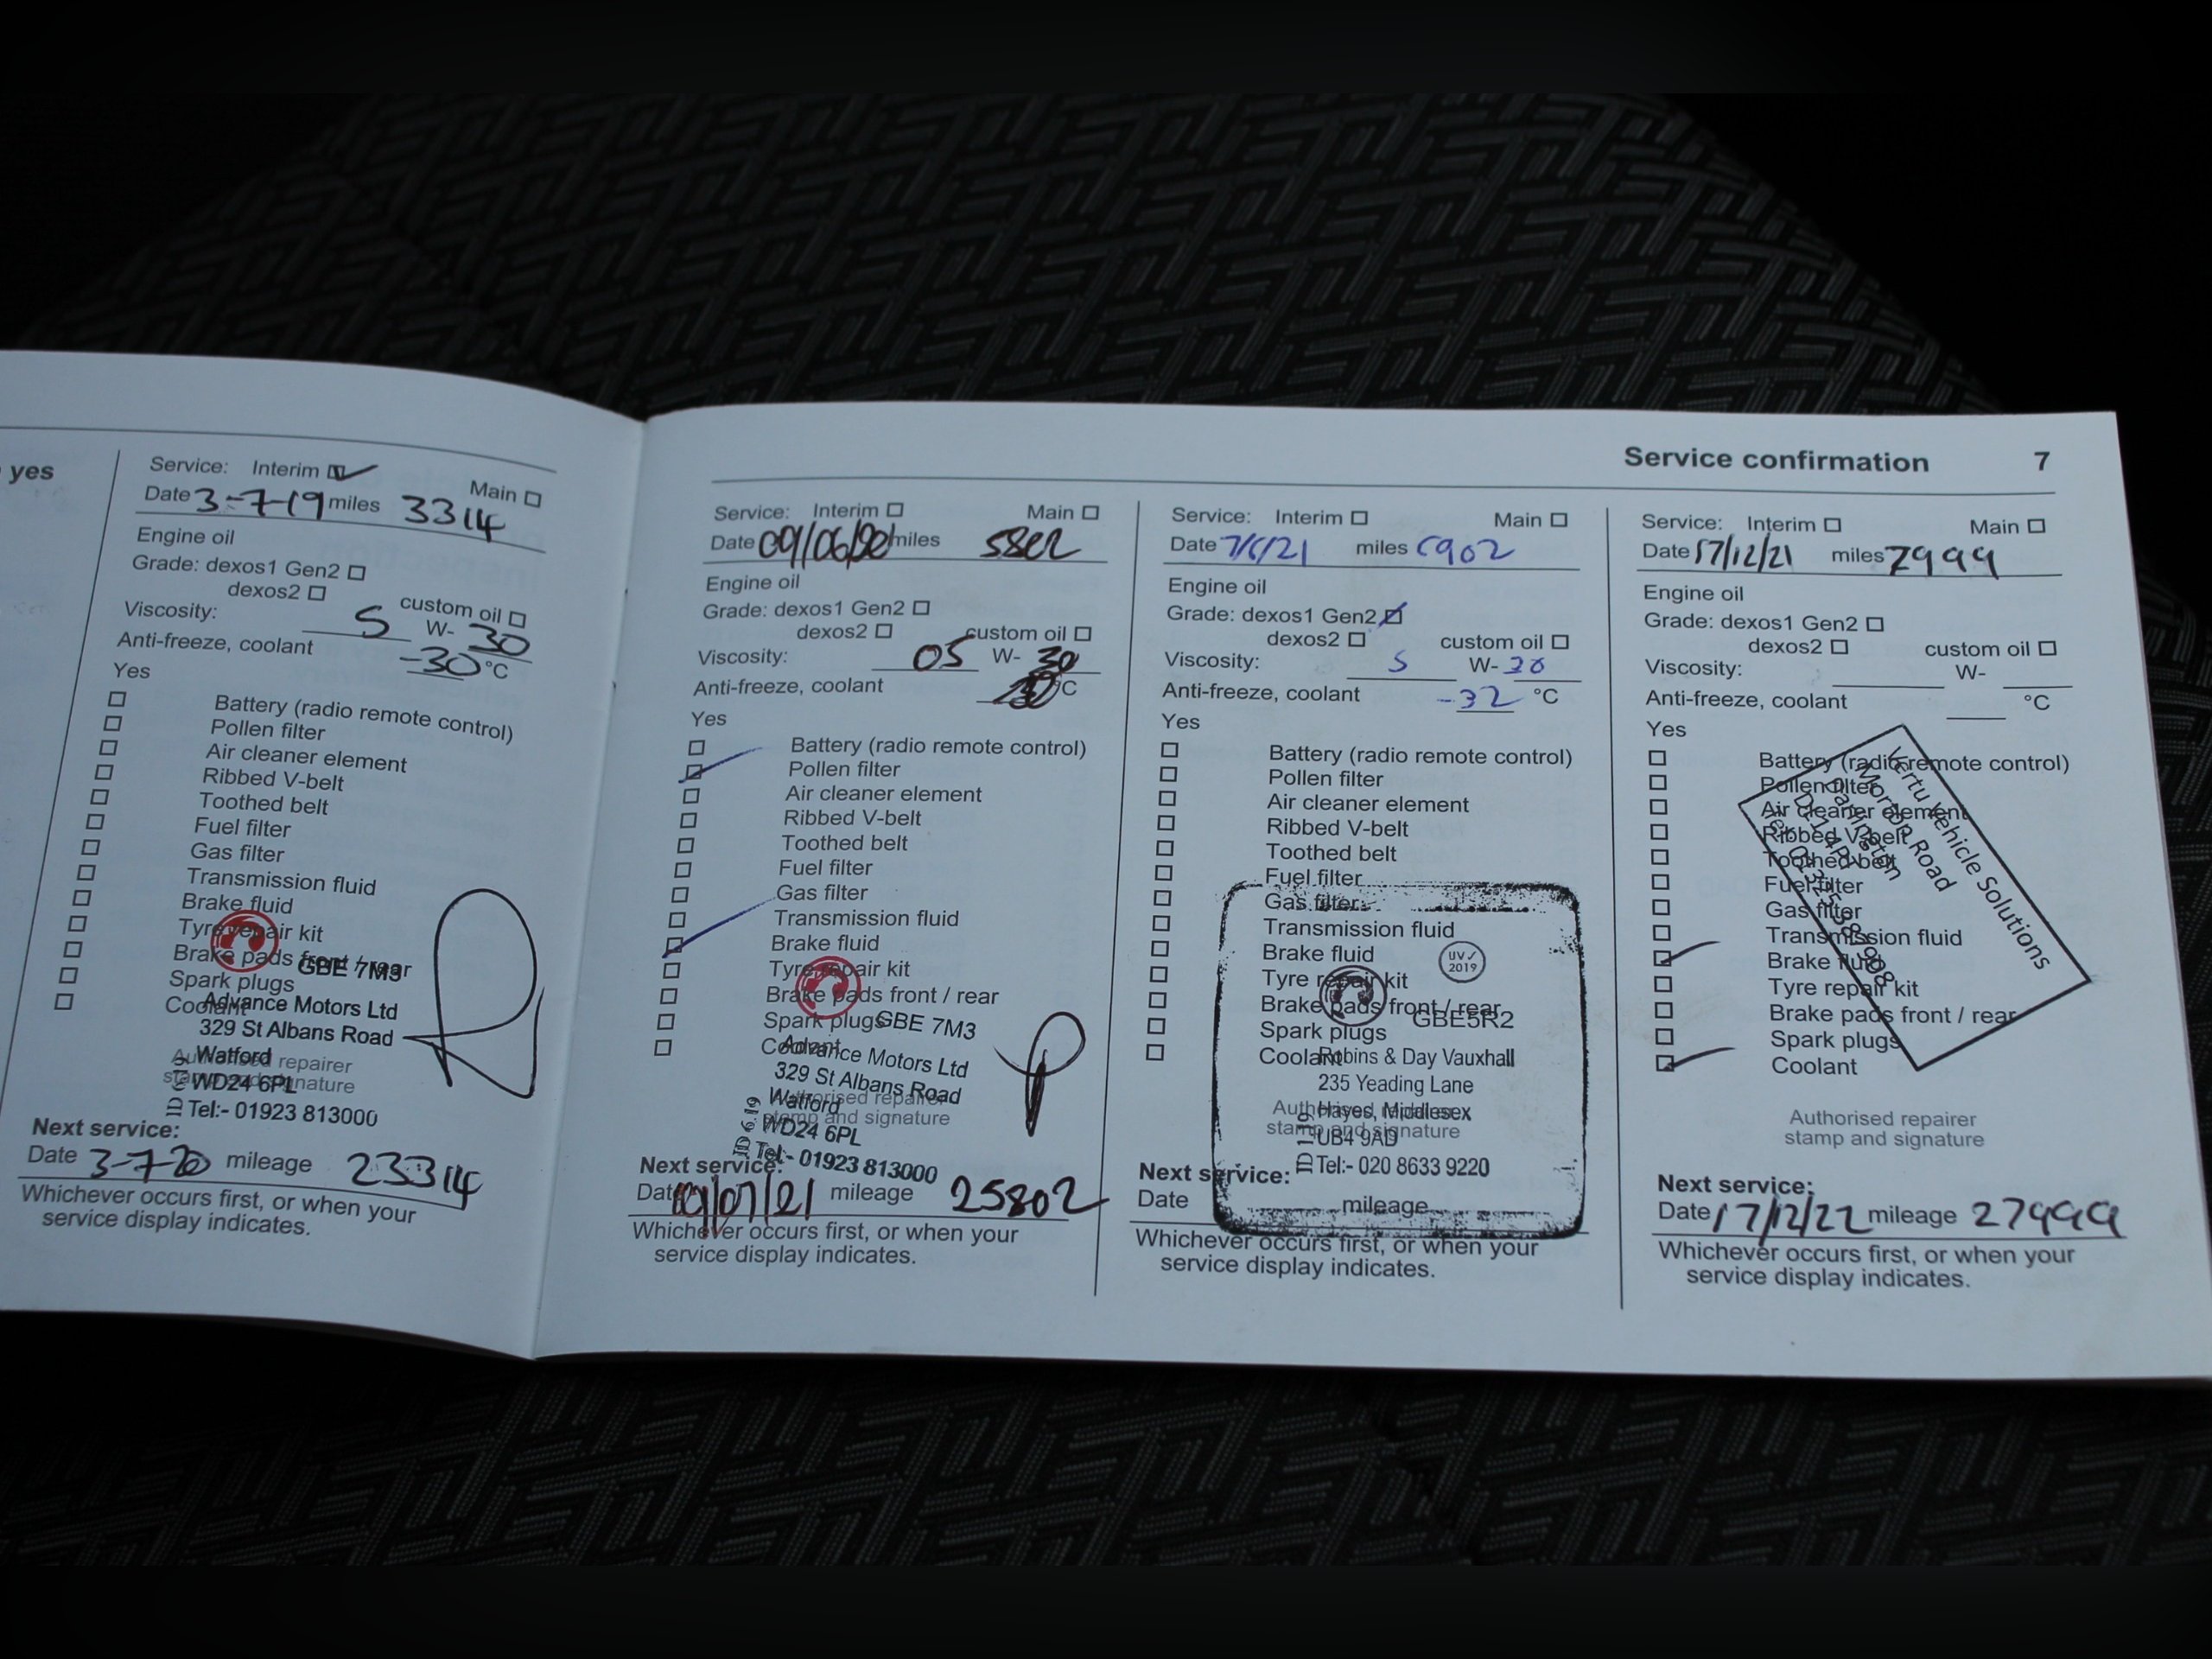 yes
Service: Interim Main
Date 3-7-19 miles 3314
Engine oil
Grade: dexos1 Gen2
dexos2 custom oil
Viscosity: 5 W- 30
Anti-freeze, coolant -30 °C
Yes
Battery (radio remote control)
Pollen filter
Air cleaner element
Ribbed V-belt
Toothed belt
Fuel filter
Gas filter
Transmission fluid
Brake fluid
Tyre repair kit
Brake pads front / rear
Spark plugs
Coolant
GBE 7M3
Advance Motors Ltd
329 St Albans Road
Watford
WD24 6PL
Tel:- 01923 813000
Authorised repairer
stamp and signature
Next service:
Date 3-7-20 mileage 23314
Whichever occurs first, or when your
service display indicates.
Service confirmation 7
Service: Interim Main
Date 09/06/20 miles
Engine oil
Grade: dexos1 Gen2
dexos2 custom oil
Viscosity: 05 W- 30
Anti-freeze, coolant °C
Yes
Battery (radio remote control)
Pollen filter
Air cleaner element
Ribbed V-belt
Toothed belt
Fuel filter
Gas filter
Transmission fluid
Brake fluid
Tyre repair kit
Brake pads front / rear
Spark plugs
Coolant
GBE 7M3
Advance Motors Ltd
329 St Albans Road
Watford
WD24 6PL
Tel:- 01923 813000
ID 6.19
Authorised repairer
stamp and signature
Next service:
Date mileage 25802
Whichever occurs first, or when your
service display indicates.
Service: Interim Main
Date 7/6/21 miles 6902
Engine oil
Grade: dexos1 Gen2
dexos2 custom oil
Viscosity: 5 W- 30
Anti-freeze, coolant -32 °C
Yes
Battery (radio remote control)
Pollen filter
Air cleaner element
Ribbed V-belt
Toothed belt
Fuel filter
Gas filter
Transmission fluid
Brake fluid
Tyre repair kit
Brake pads front / rear
Spark plugs
Coolant
UV✓
2019
GBE5R2
Robins & Day Vauxhall
235 Yeading Lane
Hayes, Middlesex
UB4 9AD
Tel:- 020 8633 9220
Authorised repairer
stamp and signature
Next service:
Date mileage
Whichever occurs first, or when your
service display indicates.
Service: Interim Main
Date 17/12/21 miles 7999
Engine oil
Grade: dexos1 Gen2
dexos2 custom oil
Viscosity: W-
Anti-freeze, coolant °C
Yes
Battery (radio remote control)
Pollen filter
Air cleaner element
Ribbed V-belt
Toothed belt
Fuel filter
Gas filter
Transmission fluid
Brake fluid
Tyre repair kit
Brake pads front / rear
Spark plugs
Coolant
Vertu Vehicle Solutions
Morton Road
Darlington
Authorised repairer
stamp and signature
Next service:
Date 17/12/22 mileage 27999
Whichever occurs first, or when your
service display indicates.